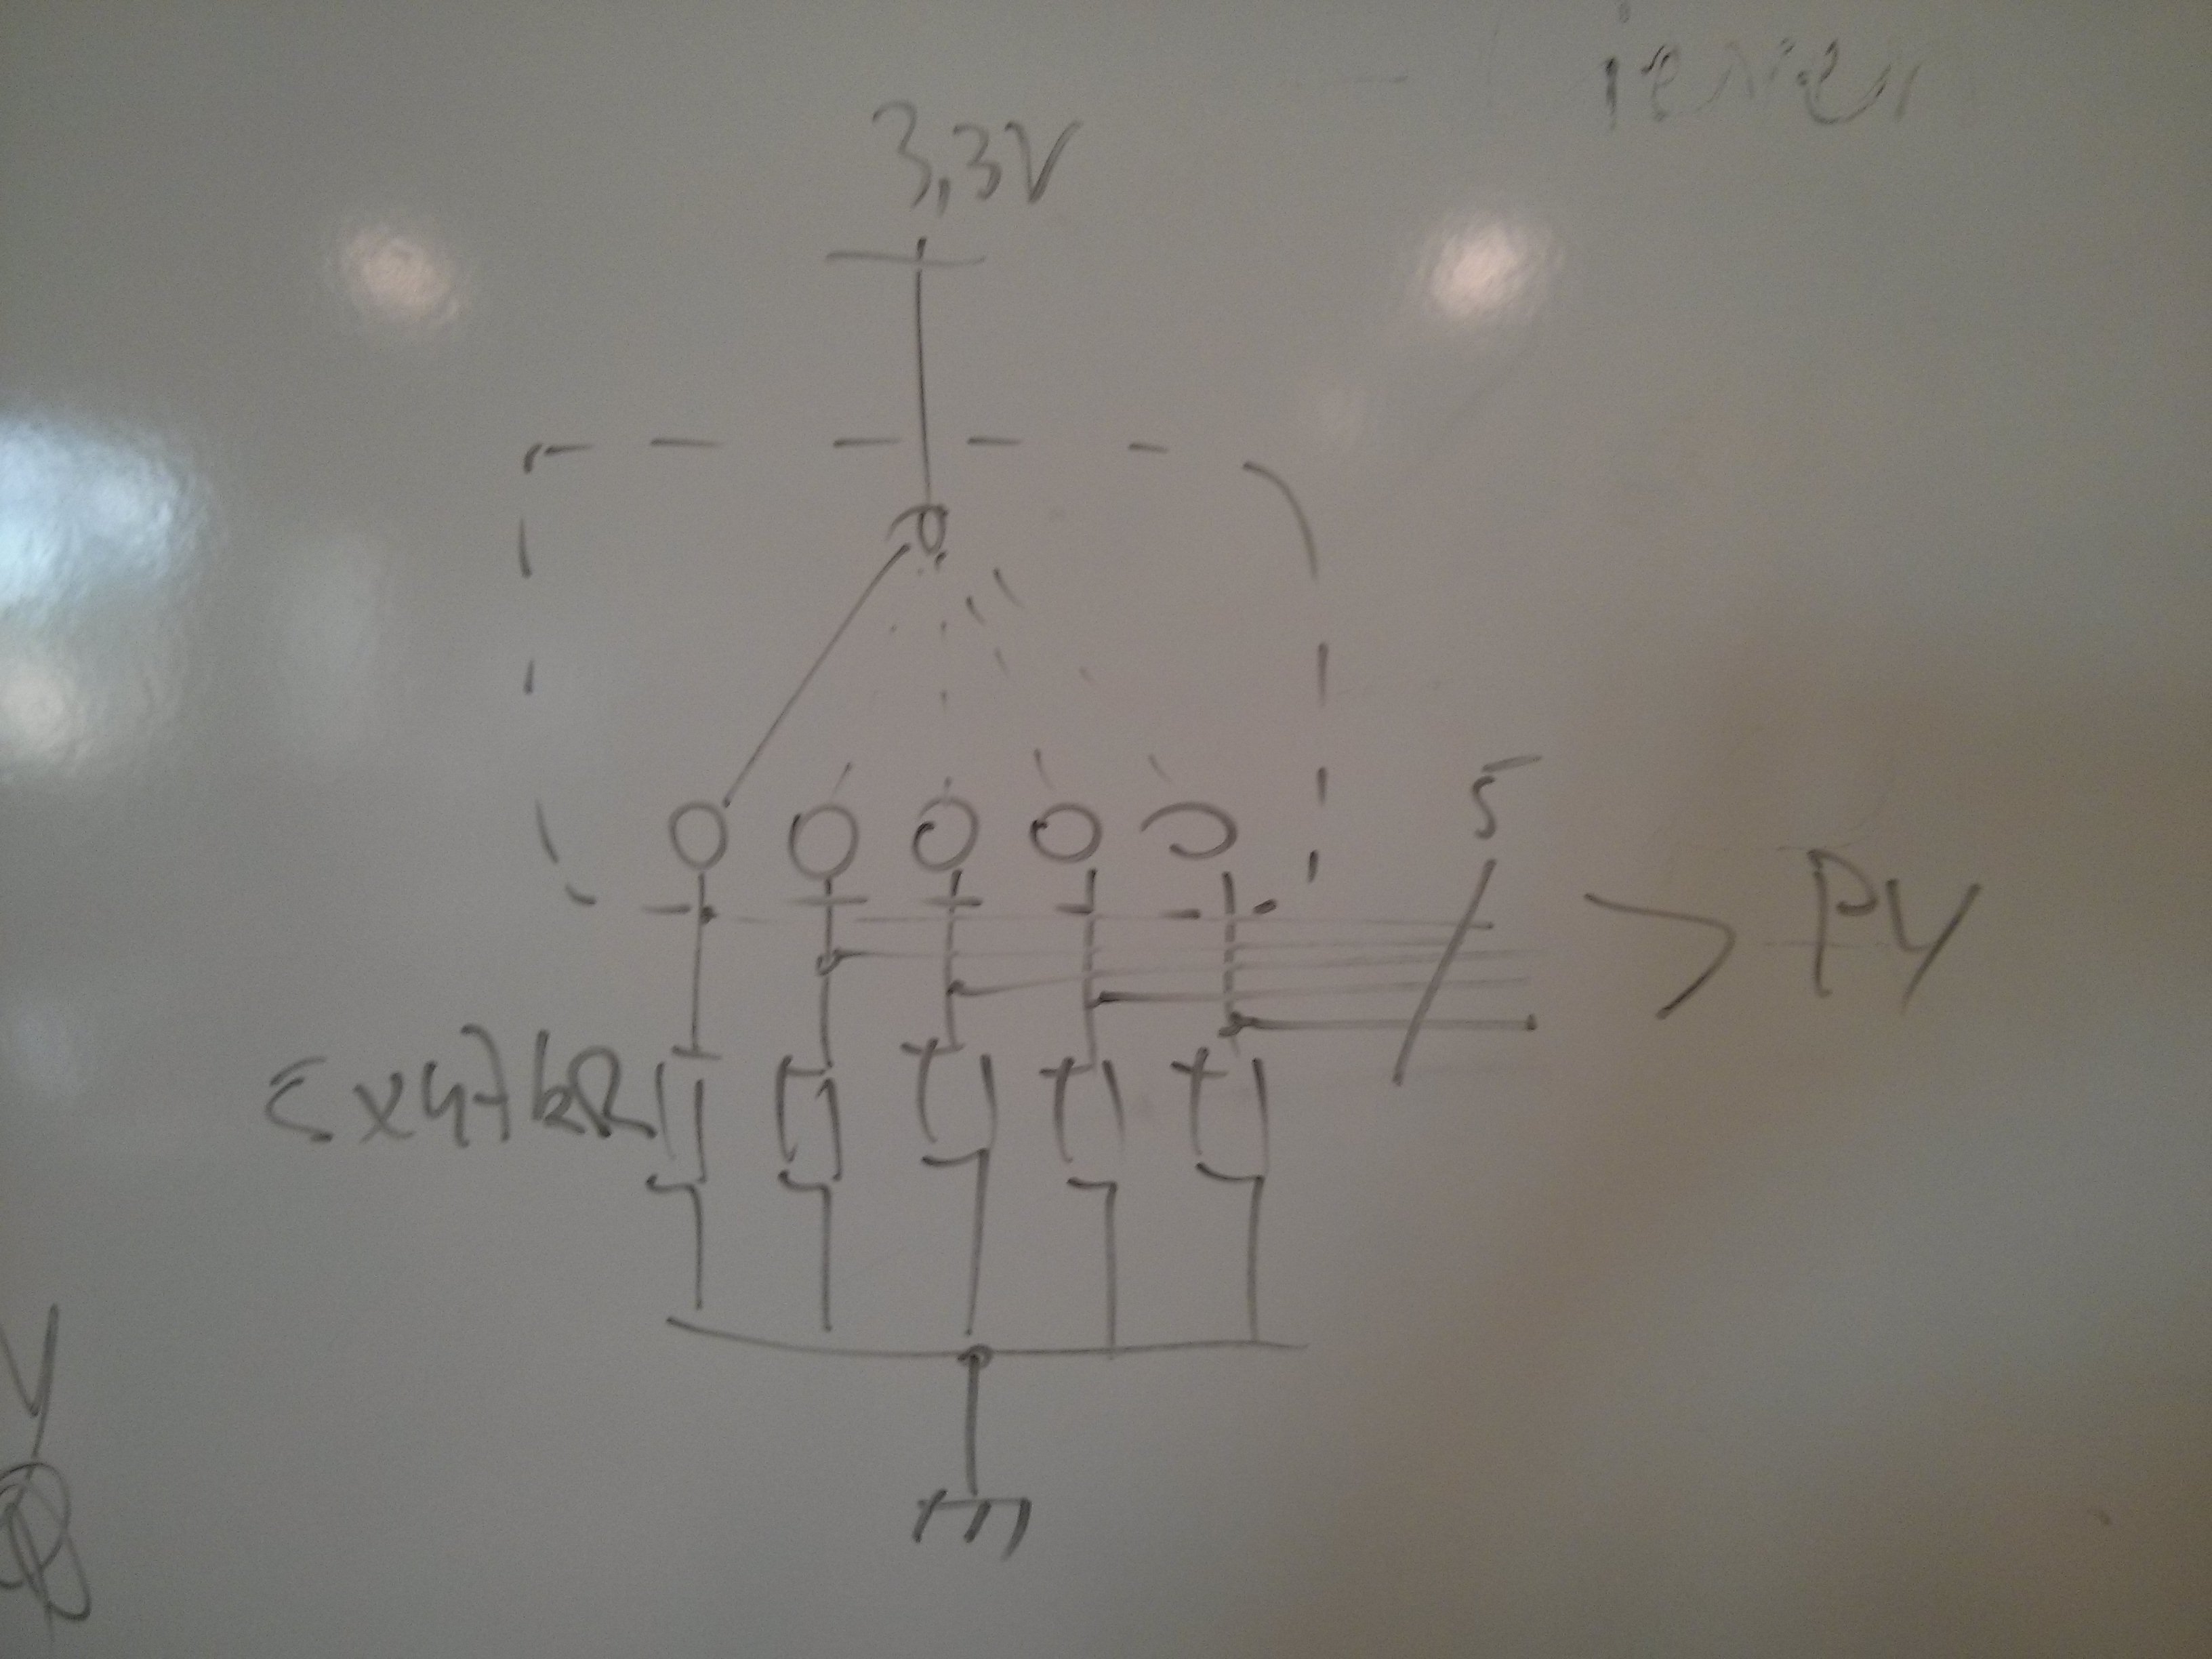 3,3V
5
PY
5x47kΩ